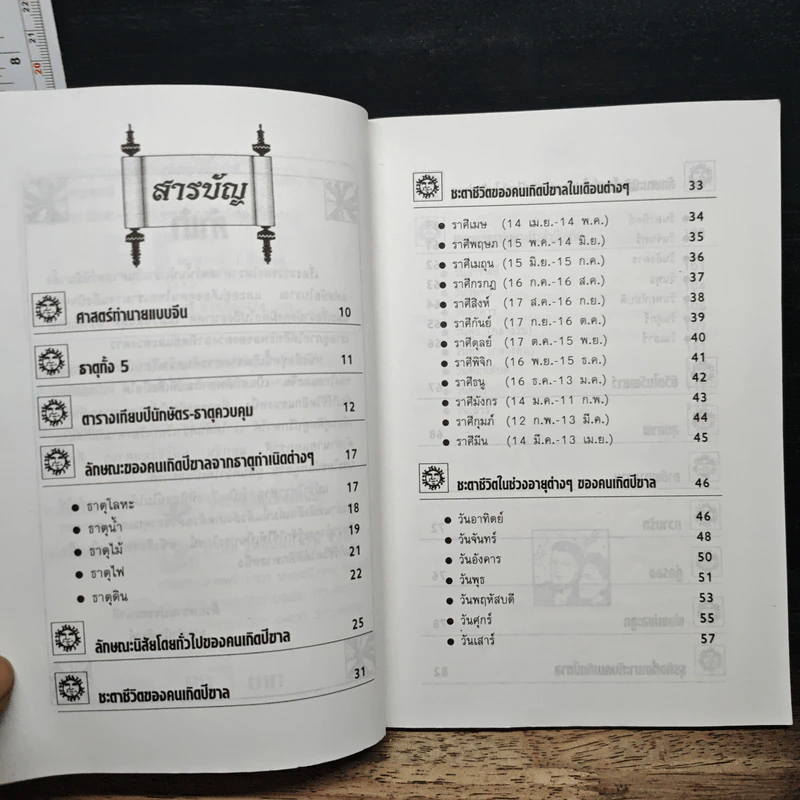 สารบัญ
ศาสตร์ทำนายแบบจีน 10
ธาตุทั้ง 5 11
ตารางเทียบปีนักษัตร-ธาตุควบคุม 12
ลักษณะของคนเกิดปีขาลจากธาตุกำเนิดต่างๆ 17
• ธาตุโลหะ 17
• ธาตุน้ำ 18
• ธาตุไม้ 19
• ธาตุไฟ 21
• ธาตุดิน 22
ลักษณะนิสัยโดยทั่วไปของคนเกิดปีขาล 25
ชะตาชีวิตของคนเกิดปีขาล 31
ชะตาชีวิตของคนเกิดปีขาลในเดือนต่างๆ 33
• ราศีเมษ (14 เม.ย.-14 พ.ค.) 34
• ราศีพฤษภ (15 พ.ค.-14 มิ.ย.) 35
• ราศีเมถุน (15 มิ.ย.-15 ก.ค.) 36
• ราศีกรกฎ (16 ก.ค.-16 ส.ค.) 37
• ราศีสิงห์ (17 ส.ค.-16 ก.ย.) 38
• ราศีกันย์ (17 ก.ย.-16 ต.ค.) 39
• ราศีตุลย์ (17 ต.ค.-15 พ.ย.) 40
• ราศีพิจิก (16 พ.ย.-15 ธ.ค.) 41
• ราศีธนู (16 ธ.ค.-13 ม.ค.) 42
• ราศีมังกร (14 ม.ค.-11 ก.พ.) 43
• ราศีกุมภ์ (12 ก.พ.-13 มี.ค.) 44
• ราศีมีน (14 มี.ค.-13 เม.ย.) 45
ชะตาชีวิตในช่วงอายุต่างๆ ของคนเกิดปีขาล 46
• วันอาทิตย์ 46
• วันจันทร์ 48
• วันอังคาร 50
• วันพุธ 51
• วันพฤหัสบดี 53
• วันศุกร์ 55
• วันเสาร์ 57
8
21
20